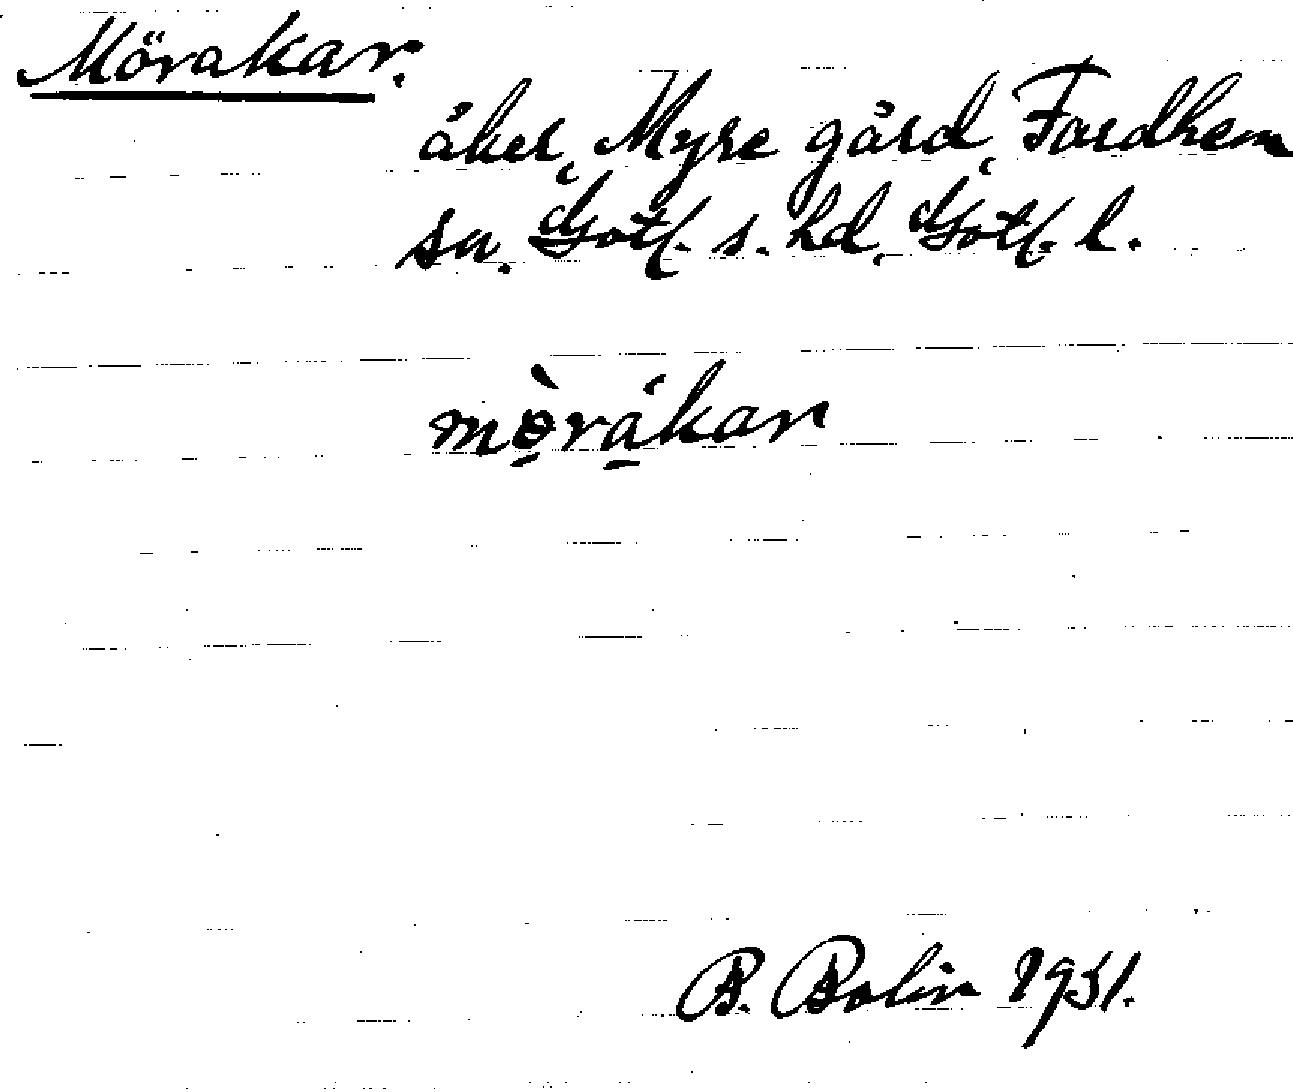 Mörakar.
åker, Myre gård, Fardhem
sn. Gotl. s. hd, Gotl. l.
mö̀rákar
B. Bolin 1931.